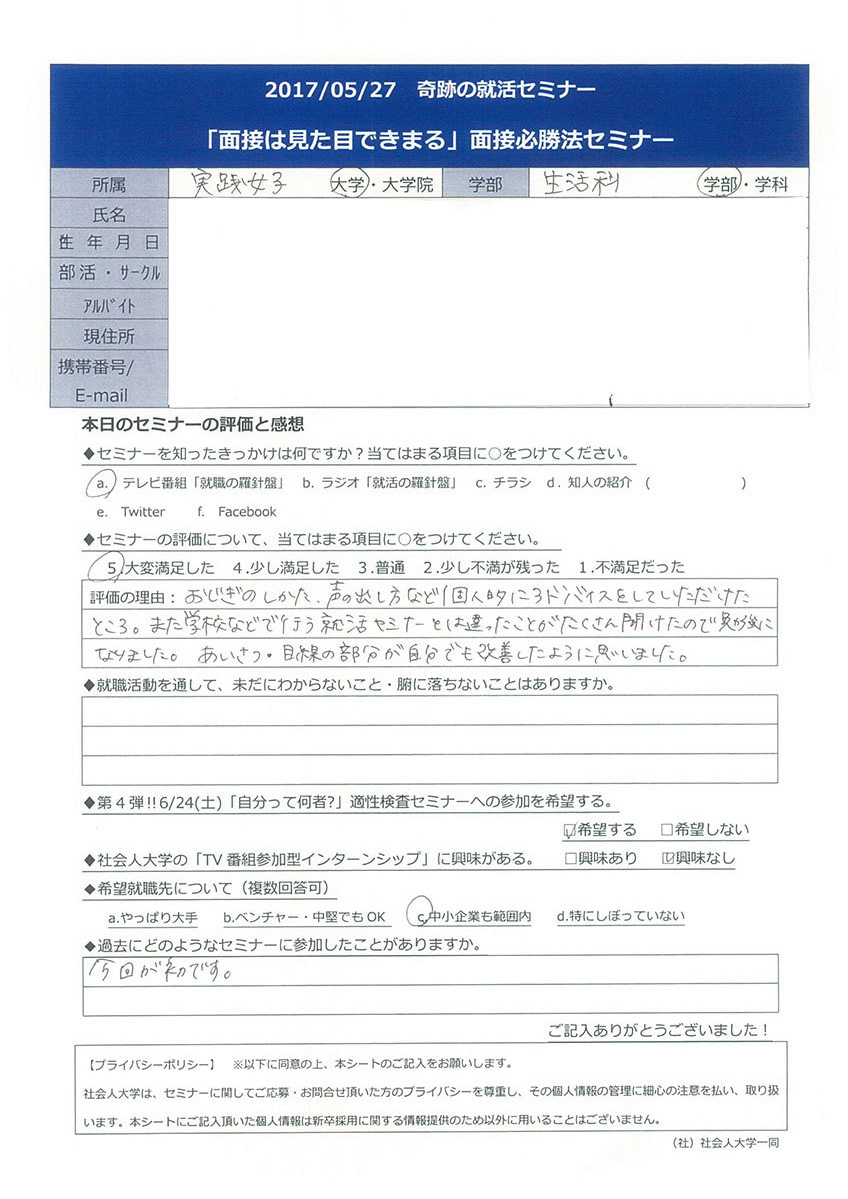 2017/05/27 奇跡の就活セミナー
「面接は見た目できまる」面接必勝法セミナー
所属 実践女子 大学・大学院 学部 生活科 学部・学科
氏名
生年月日
部活・サークル
アルバイト
現住所
携帯番号/
E-mail
本日のセミナーの評価と感想
◆セミナーを知ったきっかけは何ですか？当てはまる項目に○をつけてください。
a. テレビ番組「就職の羅針盤」 b. ラジオ「就活の羅針盤」 c. チラシ d. 知人の紹介 ( )
e. Twitter f. Facebook
◆セミナーの評価について、当てはまる項目に○をつけてください。
5.大変満足した 4.少し満足した 3.普通 2.少し不満が残った 1.不満足だった
評価の理由： おじぎのしかた、声の出し方など個人的にアドバイスをしていただけた
ところ。また学校などで行う就活セミナーとは違ったことがたくさん聞けたので
なりました。 あいさつ・目線の部分が自分でも改善したように思いました。
◆就職活動を通して、未だにわからないこと・腑に落ちないことはありますか。
◆第4弾!!6/24(土)「自分って何者?」適性検査セミナーへの参加を希望する。
☑希望する □希望しない
◆社会人大学の「TV番組参加型インターンシップ」に興味がある。 □興味あり ☑興味なし
◆希望就職先について（複数回答可）
a.やっぱり大手 b.ベンチャー・中堅でもOK c.中小企業も範囲内 d.特にしぼっていない
◆過去にどのようなセミナーに参加したことがありますか。
今回が初です。
ご記入ありがとうございました！
【プライバシーポリシー】 ※以下に同意の上、本シートのご記入をお願いします。
社会人大学は、セミナーに関してご応募・お問合せ頂いた方のプライバシーを尊重し、その個人情報の管理に細心の注意を払い、取り扱
います。本シートにご記入頂いた個人情報は新卒採用に関する情報提供のため以外に用いることはございません。
（社）社会人大学一同